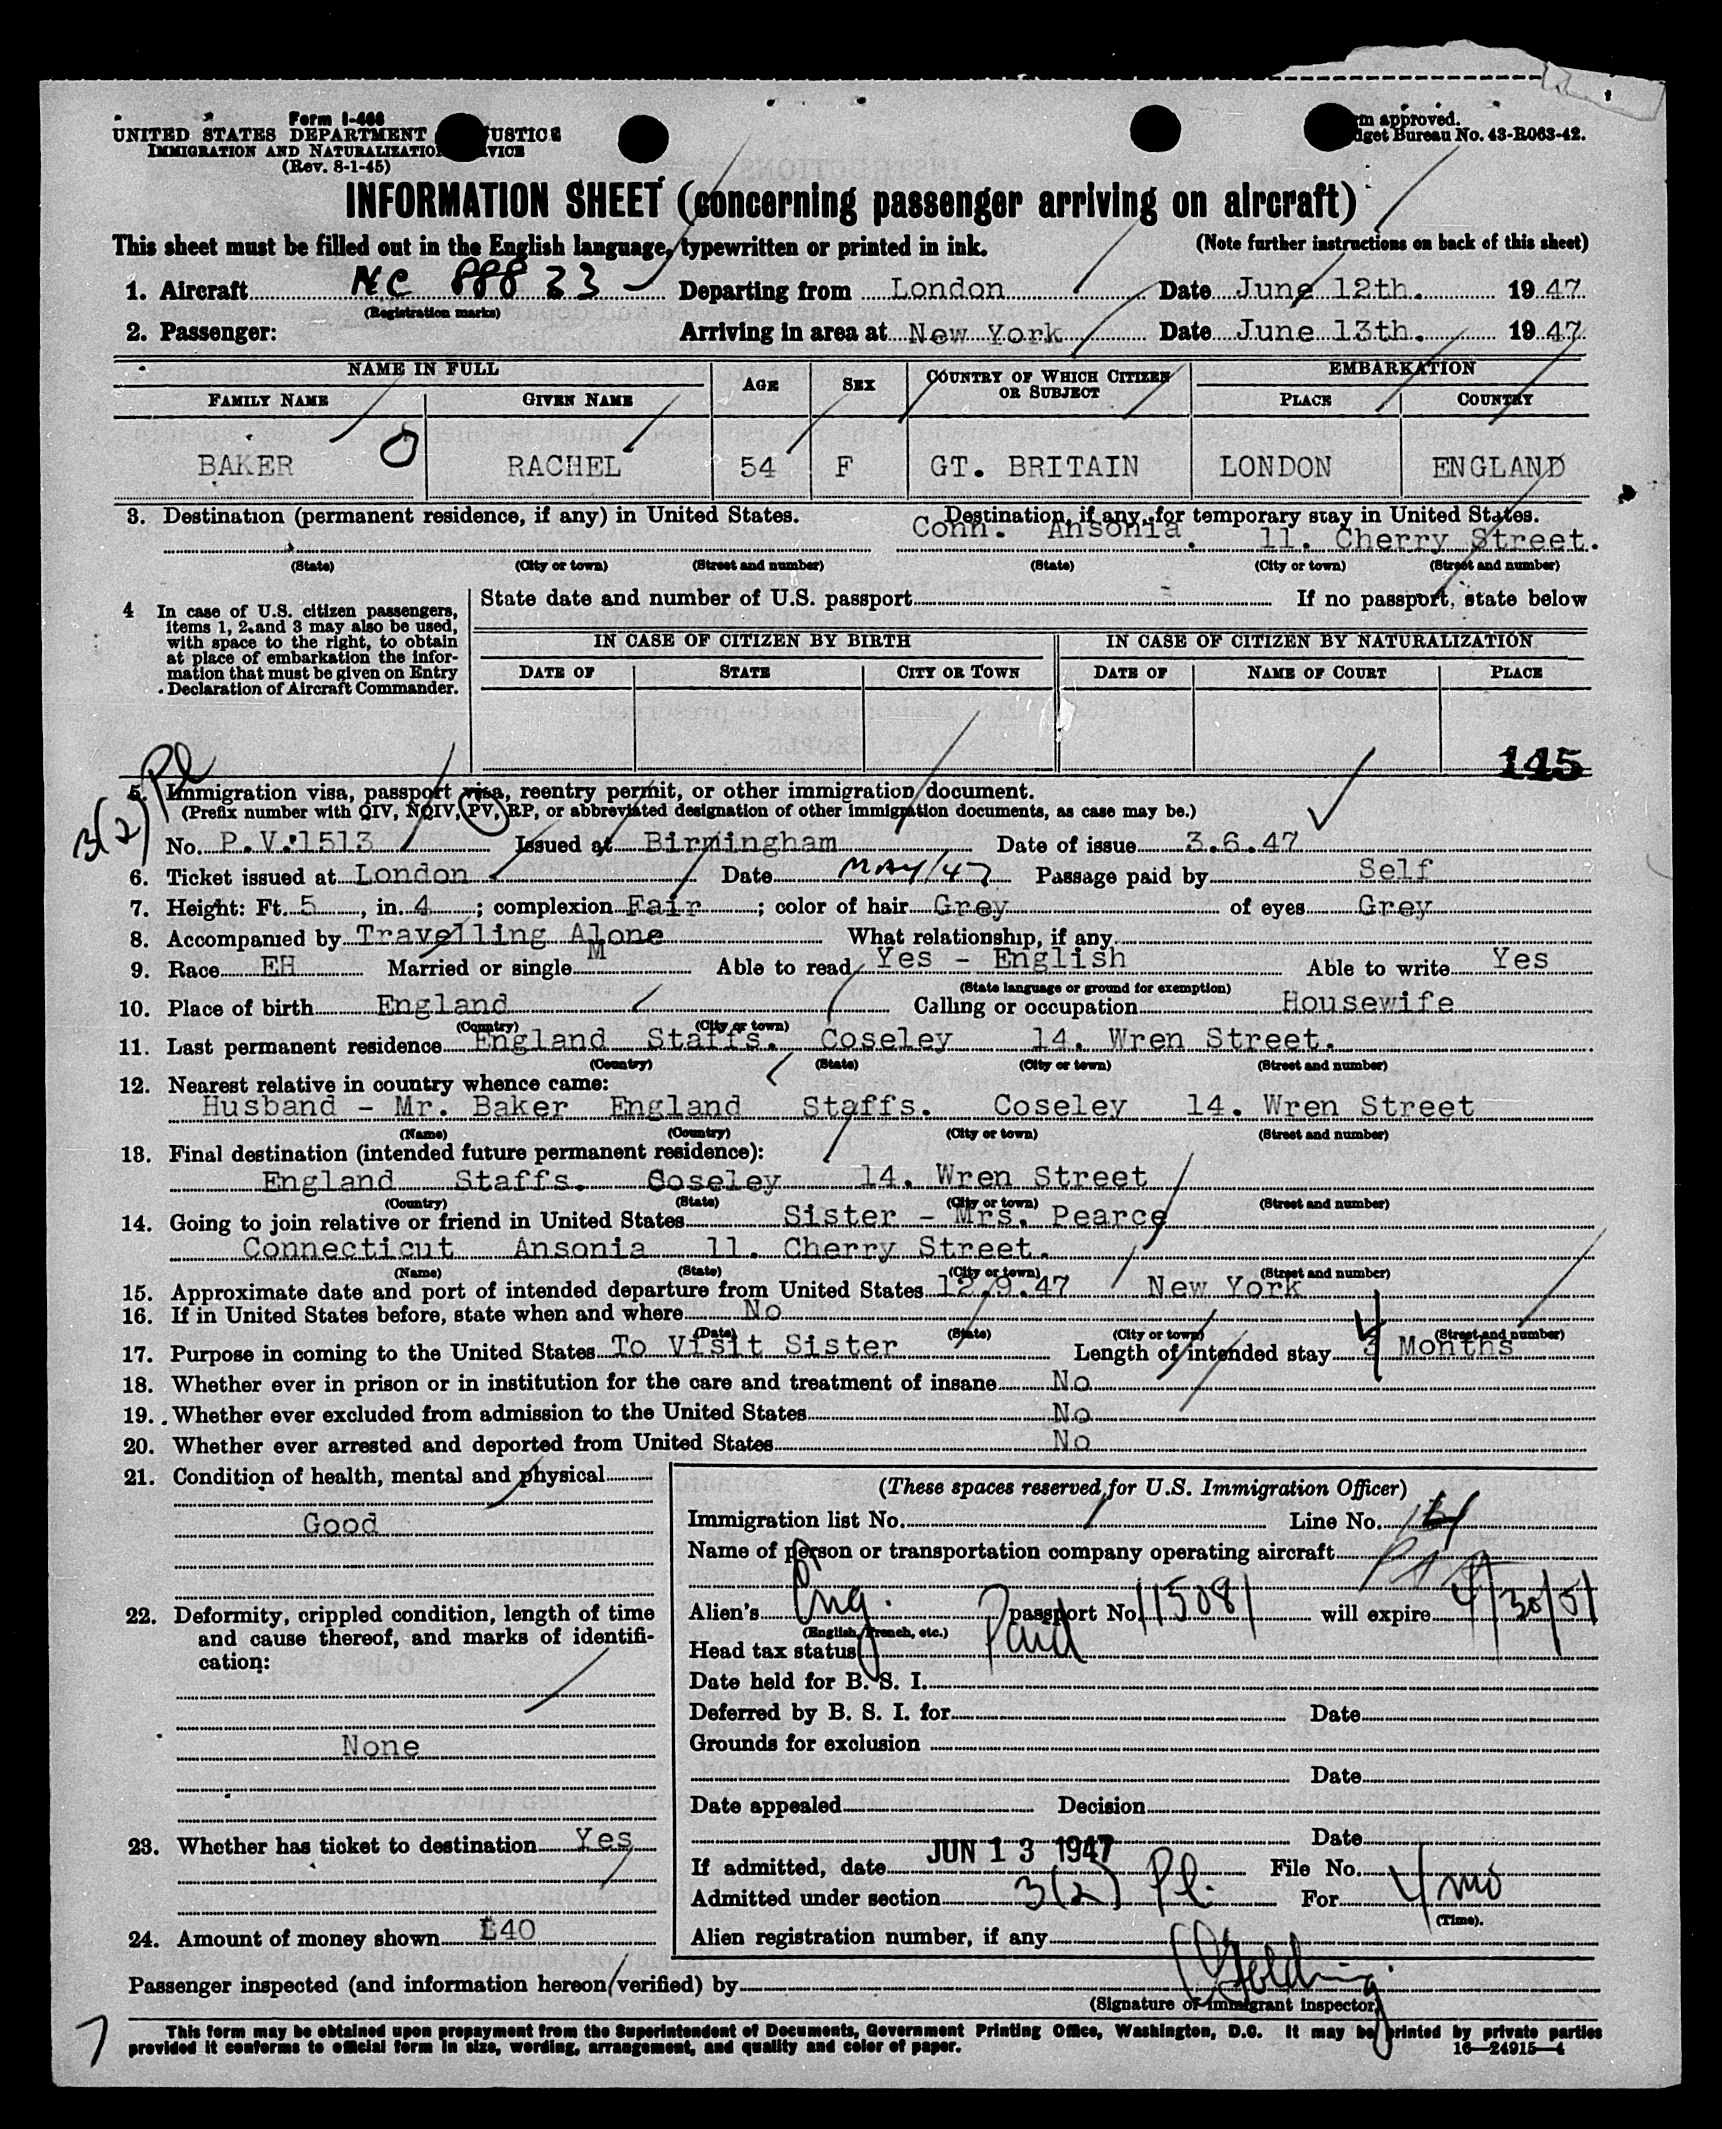 Form I-466
UNITED STATES DEPARTMENT USTICE
IMMIGRATION AND NATURALIZATIO VICE
(Rev. 8-1-45)
m approved.
dget Bureau No. 43-R063-42.
INFORMATION SHEET (concerning passenger arriving on aircraft)
This sheet must be filled out in the English language, typewritten or printed in ink. (Note further instructions on back of this sheet)
1. Aircraft NC 88833 Departing from London Date June 12th. 19 47
(Registration marks)
2. Passenger: Arriving in area at New York Date June 13th. 19 47
NAME IN FULL AGE SEX COUNTRY OF WHICH CITIZEN OR SUBJECT EMBARKATION
FAMILY NAME GIVEN NAME PLACE COUNTRY
BAKER RACHEL 54 F GT. BRITAIN LONDON ENGLAND
3. Destination (permanent residence, if any) in United States. Destination, if any, for temporary stay in United States.
Conn. Ansonia. 11. Cherry Street.
(State) (City or town) (Street and number) (State) (City or town) (Street and number)
4 In case of U.S. citizen passengers,
items 1, 2 and 3 may also be used,
with space to the right, to obtain
at place of embarkation the infor-
mation that must be given on Entry
Declaration of Aircraft Commander.
State date and number of U.S. passport If no passport, state below
IN CASE OF CITIZEN BY BIRTH IN CASE OF CITIZEN BY NATURALIZATION
DATE OF STATE CITY OR TOWN DATE OF NAME OF COURT PLACE
145
Pl
3(2)
5. Immigration visa, passport visa, reentry permit, or other immigration document.
(Prefix number with QIV, NQIV, PV, RP, or abbreviated designation of other immigration documents, as case may be.)
No. P.V.1513 Issued at Birmingham Date of issue 3.6.47
6. Ticket issued at London Date MAY/47 Passage paid by Self
7. Height: Ft. 5, in. 4; complexion Fair; color of hair Grey of eyes Grey
8. Accompanied by Travelling Alone What relationship, if any
9. Race EH Married or single M Able to read Yes - English Able to write Yes
(State language or ground for exemption)
10. Place of birth England Calling or occupation Housewife
(Country) (City or town)
11. Last permanent residence England Staffs. Coseley 14. Wren Street.
(Country) (State) (City or town) (Street and number)
12. Nearest relative in country whence came:
Husband - Mr. Baker England Staffs. Coseley 14. Wren Street
(Name) (Country) (City or town) (Street and number)
13. Final destination (intended future permanent residence):
England Staffs. Coseley 14. Wren Street
(Country) (State) (City or town) (Street and number)
14. Going to join relative or friend in United States Sister - Mrs. Pearce
Connecticut Ansonia 11. Cherry Street.
(Name) (State) (City or town) (Street and number)
15. Approximate date and port of intended departure from United States 12.9.47 New York
16. If in United States before, state when and where No
(Date) (State) (City or town) (Street and number)
17. Purpose in coming to the United States To Visit Sister Length of intended stay 4 Months
18. Whether ever in prison or in institution for the care and treatment of insane No
19. Whether ever excluded from admission to the United States No
20. Whether ever arrested and deported from United States No
21. Condition of health, mental and physical
Good
22. Deformity, crippled condition, length of time
and cause thereof, and marks of identifi-
cation:
None
23. Whether has ticket to destination Yes
24. Amount of money shown £40
(These spaces reserved for U.S. Immigration Officer)
Immigration list No. Line No.
Name of person or transportation company operating aircraft
Alien's Eng. passport No. 115081 will expire 4/30/51
(English, French, etc.)
Head tax status Paid
Date held for B. S. I.
Deferred by B. S. I. for Date
Grounds for exclusion
Date
Date appealed Decision
Date
If admitted, date JUN 13 1947 File No.
Admitted under section 3(2) Pl. For 4 mo
(Time).
Alien registration number, if any
Passenger inspected (and information hereon verified) by Golding
(Signature of immigrant inspector)
This form may be obtained upon prepayment from the Superintendent of Documents, Government Printing Office, Washington, D.C. It may be printed by private parties
provided it conforms to official form in size, wording, arrangement, and quality and color of paper. 16—24915-4
7